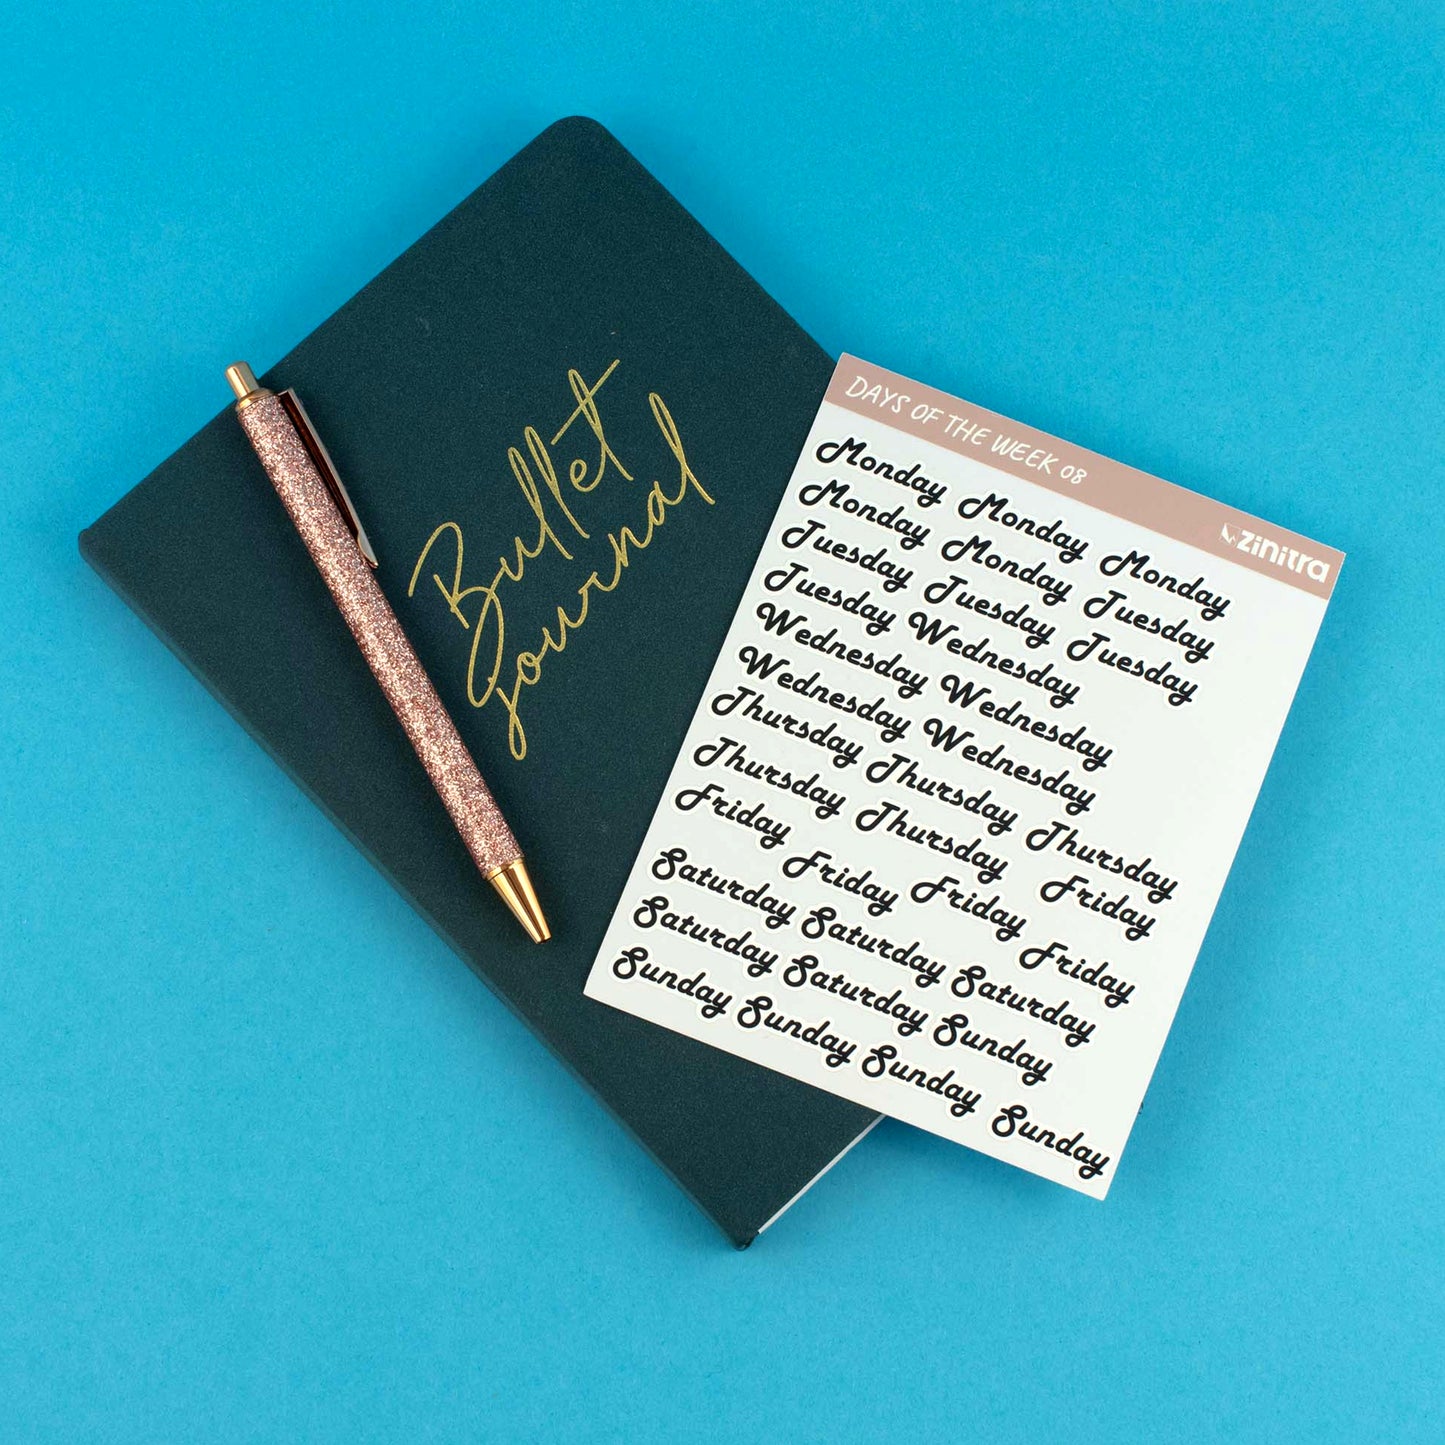 Bullet
Journal
DAYS OF THE WEEK 08
zinitra
Monday Monday Monday
Monday Monday Tuesday
Tuesday Tuesday Tuesday
Tuesday Wednesday
Wednesday Wednesday
Wednesday Wednesday
Thursday Thursday Thursday
Thursday Thursday Friday
Friday Friday Friday Friday
Saturday Saturday Saturday
Saturday Saturday Sunday
Sunday Sunday Sunday Sunday